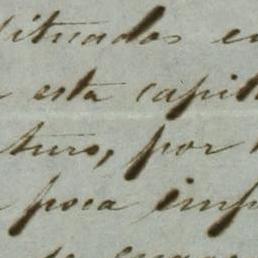 situados en
esta capill
turo, por
poca imp